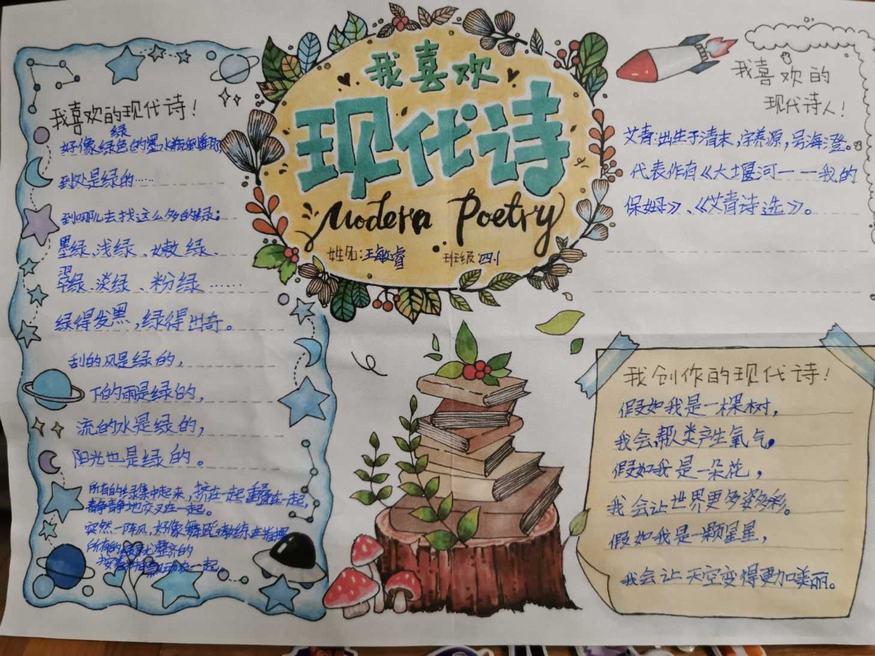 我喜欢
现代诗
Modern Poetry
姓名:王敏睿 班级 四1
我喜欢的现代诗!
好像绿色的墨水瓶倒翻
到处是绿的……
到哪儿去找这么多的绿:
墨绿、浅绿、嫩绿、
翠绿、淡绿、粉绿……
绿得发黑,绿得出奇。
刮的风是绿的,
下的雨是绿的,
流的水是绿的,
阳光也是绿的。
所有的绿集中起来,挤在一起重叠在一起,
静静地交叉在一起。
突然一阵风,好像舞蹈教练在指挥
所有的绿就整齐的
按着节拍飘动在一起
我喜欢的
现代诗人!
艾青:出生于清末,字养源,号海澄。
代表作有《大堰河——我的
保姆》、《艾青诗选》。
我创作的现代诗!
假如我是一棵树,
我会帮人类产生氧气。
假如我是一朵花,
我会让世界更多姿多彩。
假如我是一颗星星,
我会让天空变得更加美丽。